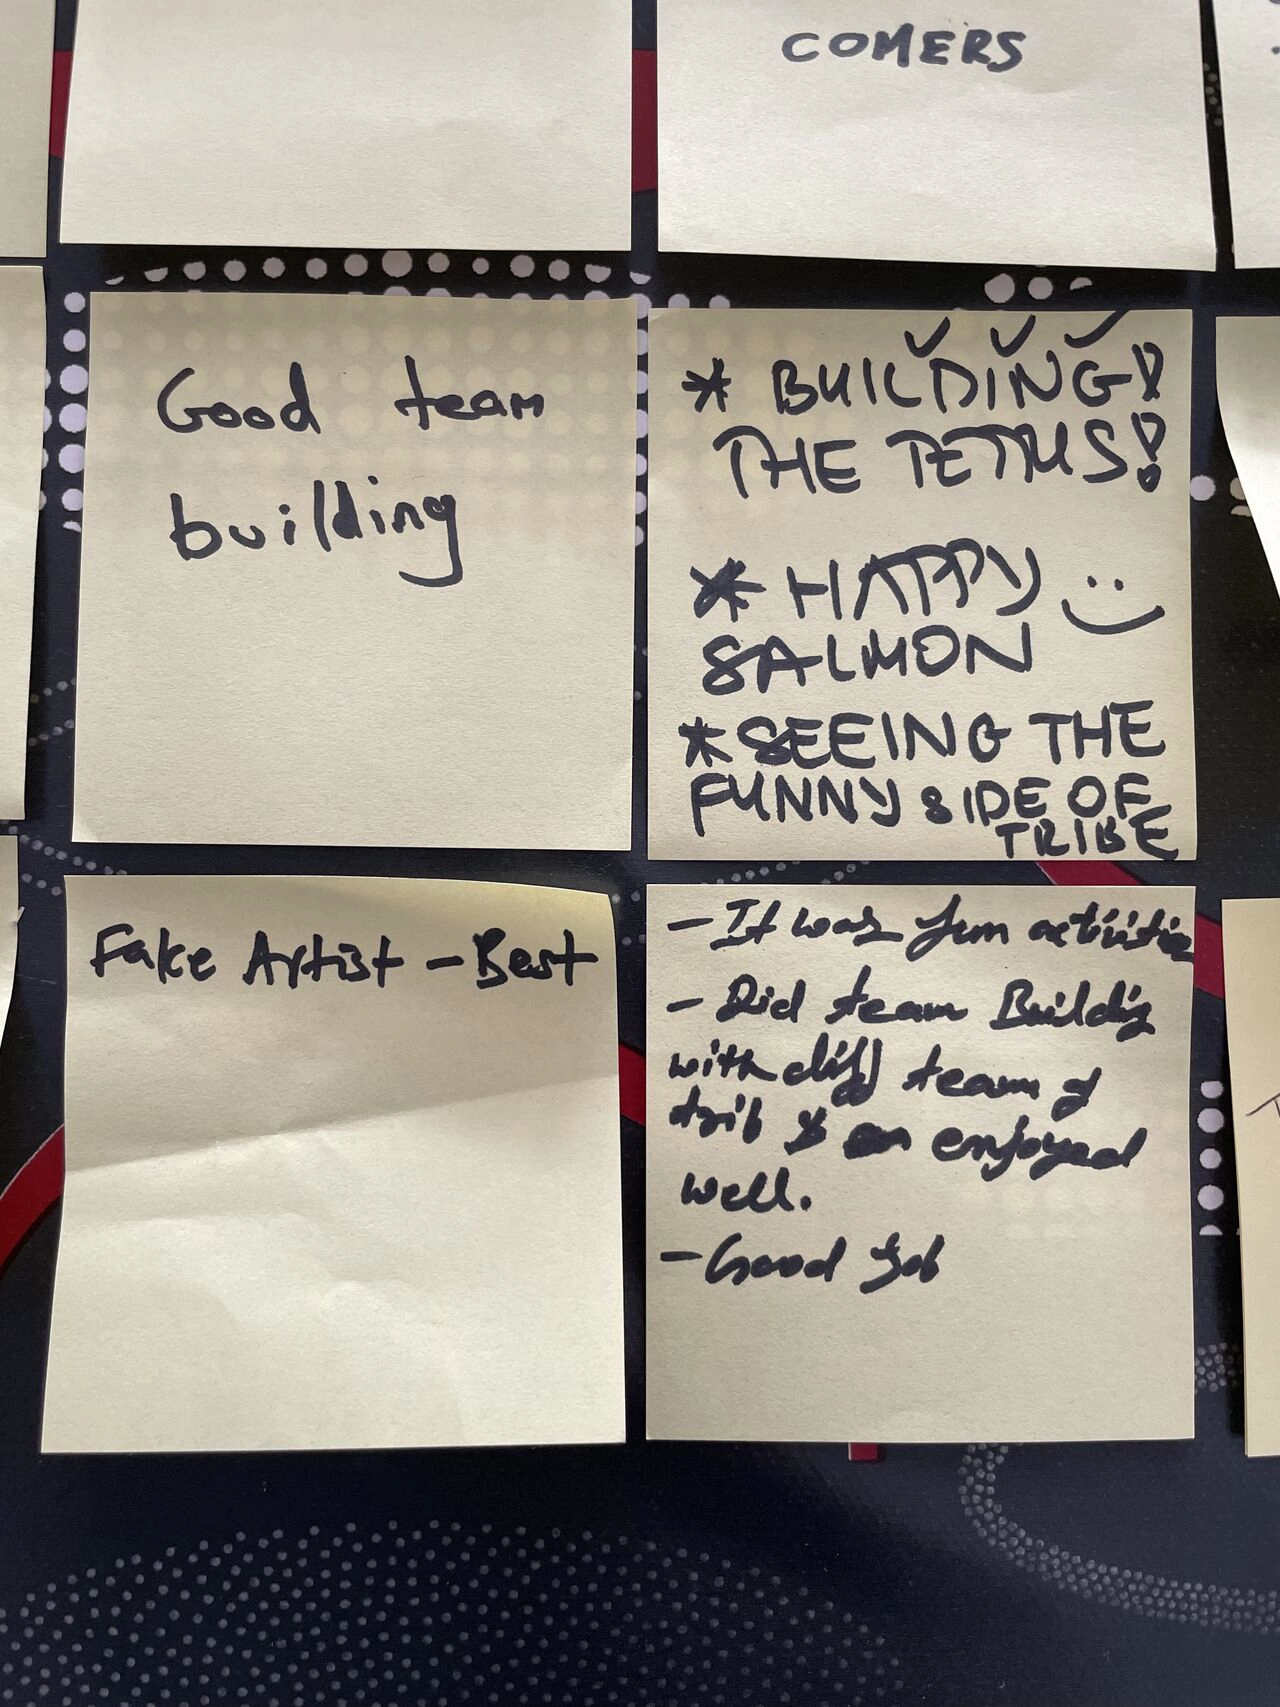 COMERS
Good team
building
* BUILDING!
THE TETRIS!
* HAPPY
SALMON
* SEEING THE
FUNNY SIDE OF
TRIBE
Fake Artist - Best
- It was fun activities
- Did team Building
with diff team of
trib & enjoyed
well.
- Good Job